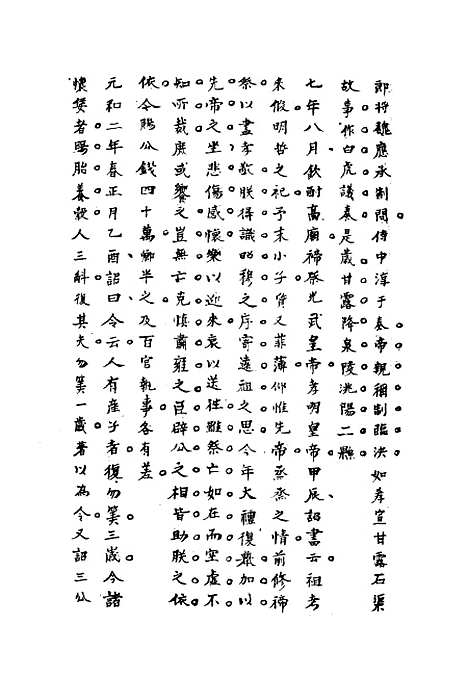 郎將魏應承制問侍中淳于奏帝親稱制臨決如孝宣甘露石渠
故事作白虎議奏是歲甘露降泉陵洮陽二縣
七年八月飲酎高廟禘祭光武皇帝孝明皇帝甲辰詔書云祖考
來假明哲之祀予末小子質又菲薄仰惟先帝烝烝之情前修禘
祭以盡孝敬朕得識昭穆之序寄遠祖之思今年大禮復舉加以
先帝之坐悲傷感懷樂以迎來哀以送往雖祭亡如在而空虛不
知所裁庶或饗之豈無亡克慎肅雍之臣辟公之相皆助朕之依
依今賜公錢四十萬卿半之及百官執事各有差
元和二年春正月乙酉詔曰令云人有產子者復勿筭三歲今諸
懷姙者賜胎養穀人三斛復其夫勿筭一歲著以為令又詔三公